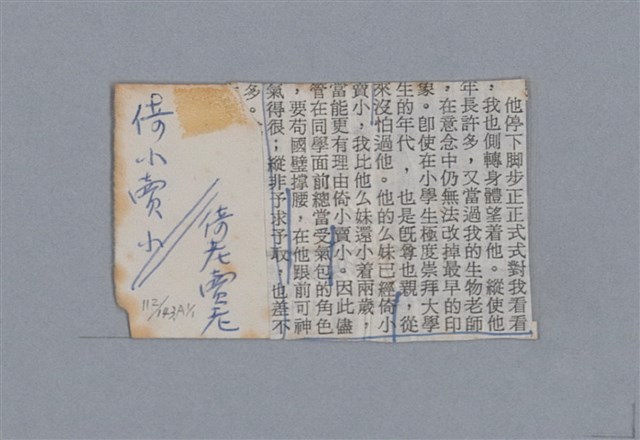 他停下脚步正正式式對我看看
，我也側轉身體望着他。縱使他
年長許多，又當過我的生物老師
，在意念中仍無法改掉最早的印
象。卽使在小學生極度崇拜大學
生的年代，也是旣尊也親，從
來沒怕過他。他的么妹已經倚小
賣小，我比他么妹還小着兩歲，
當能更有理由倚小賣小。因此儘
管在同學面前總當受氣包的角色
，要苟國璧撑腰，在他跟前可神
氣得很；縱非予求予取，也差不
多。
倚小賣小
倚老賣老